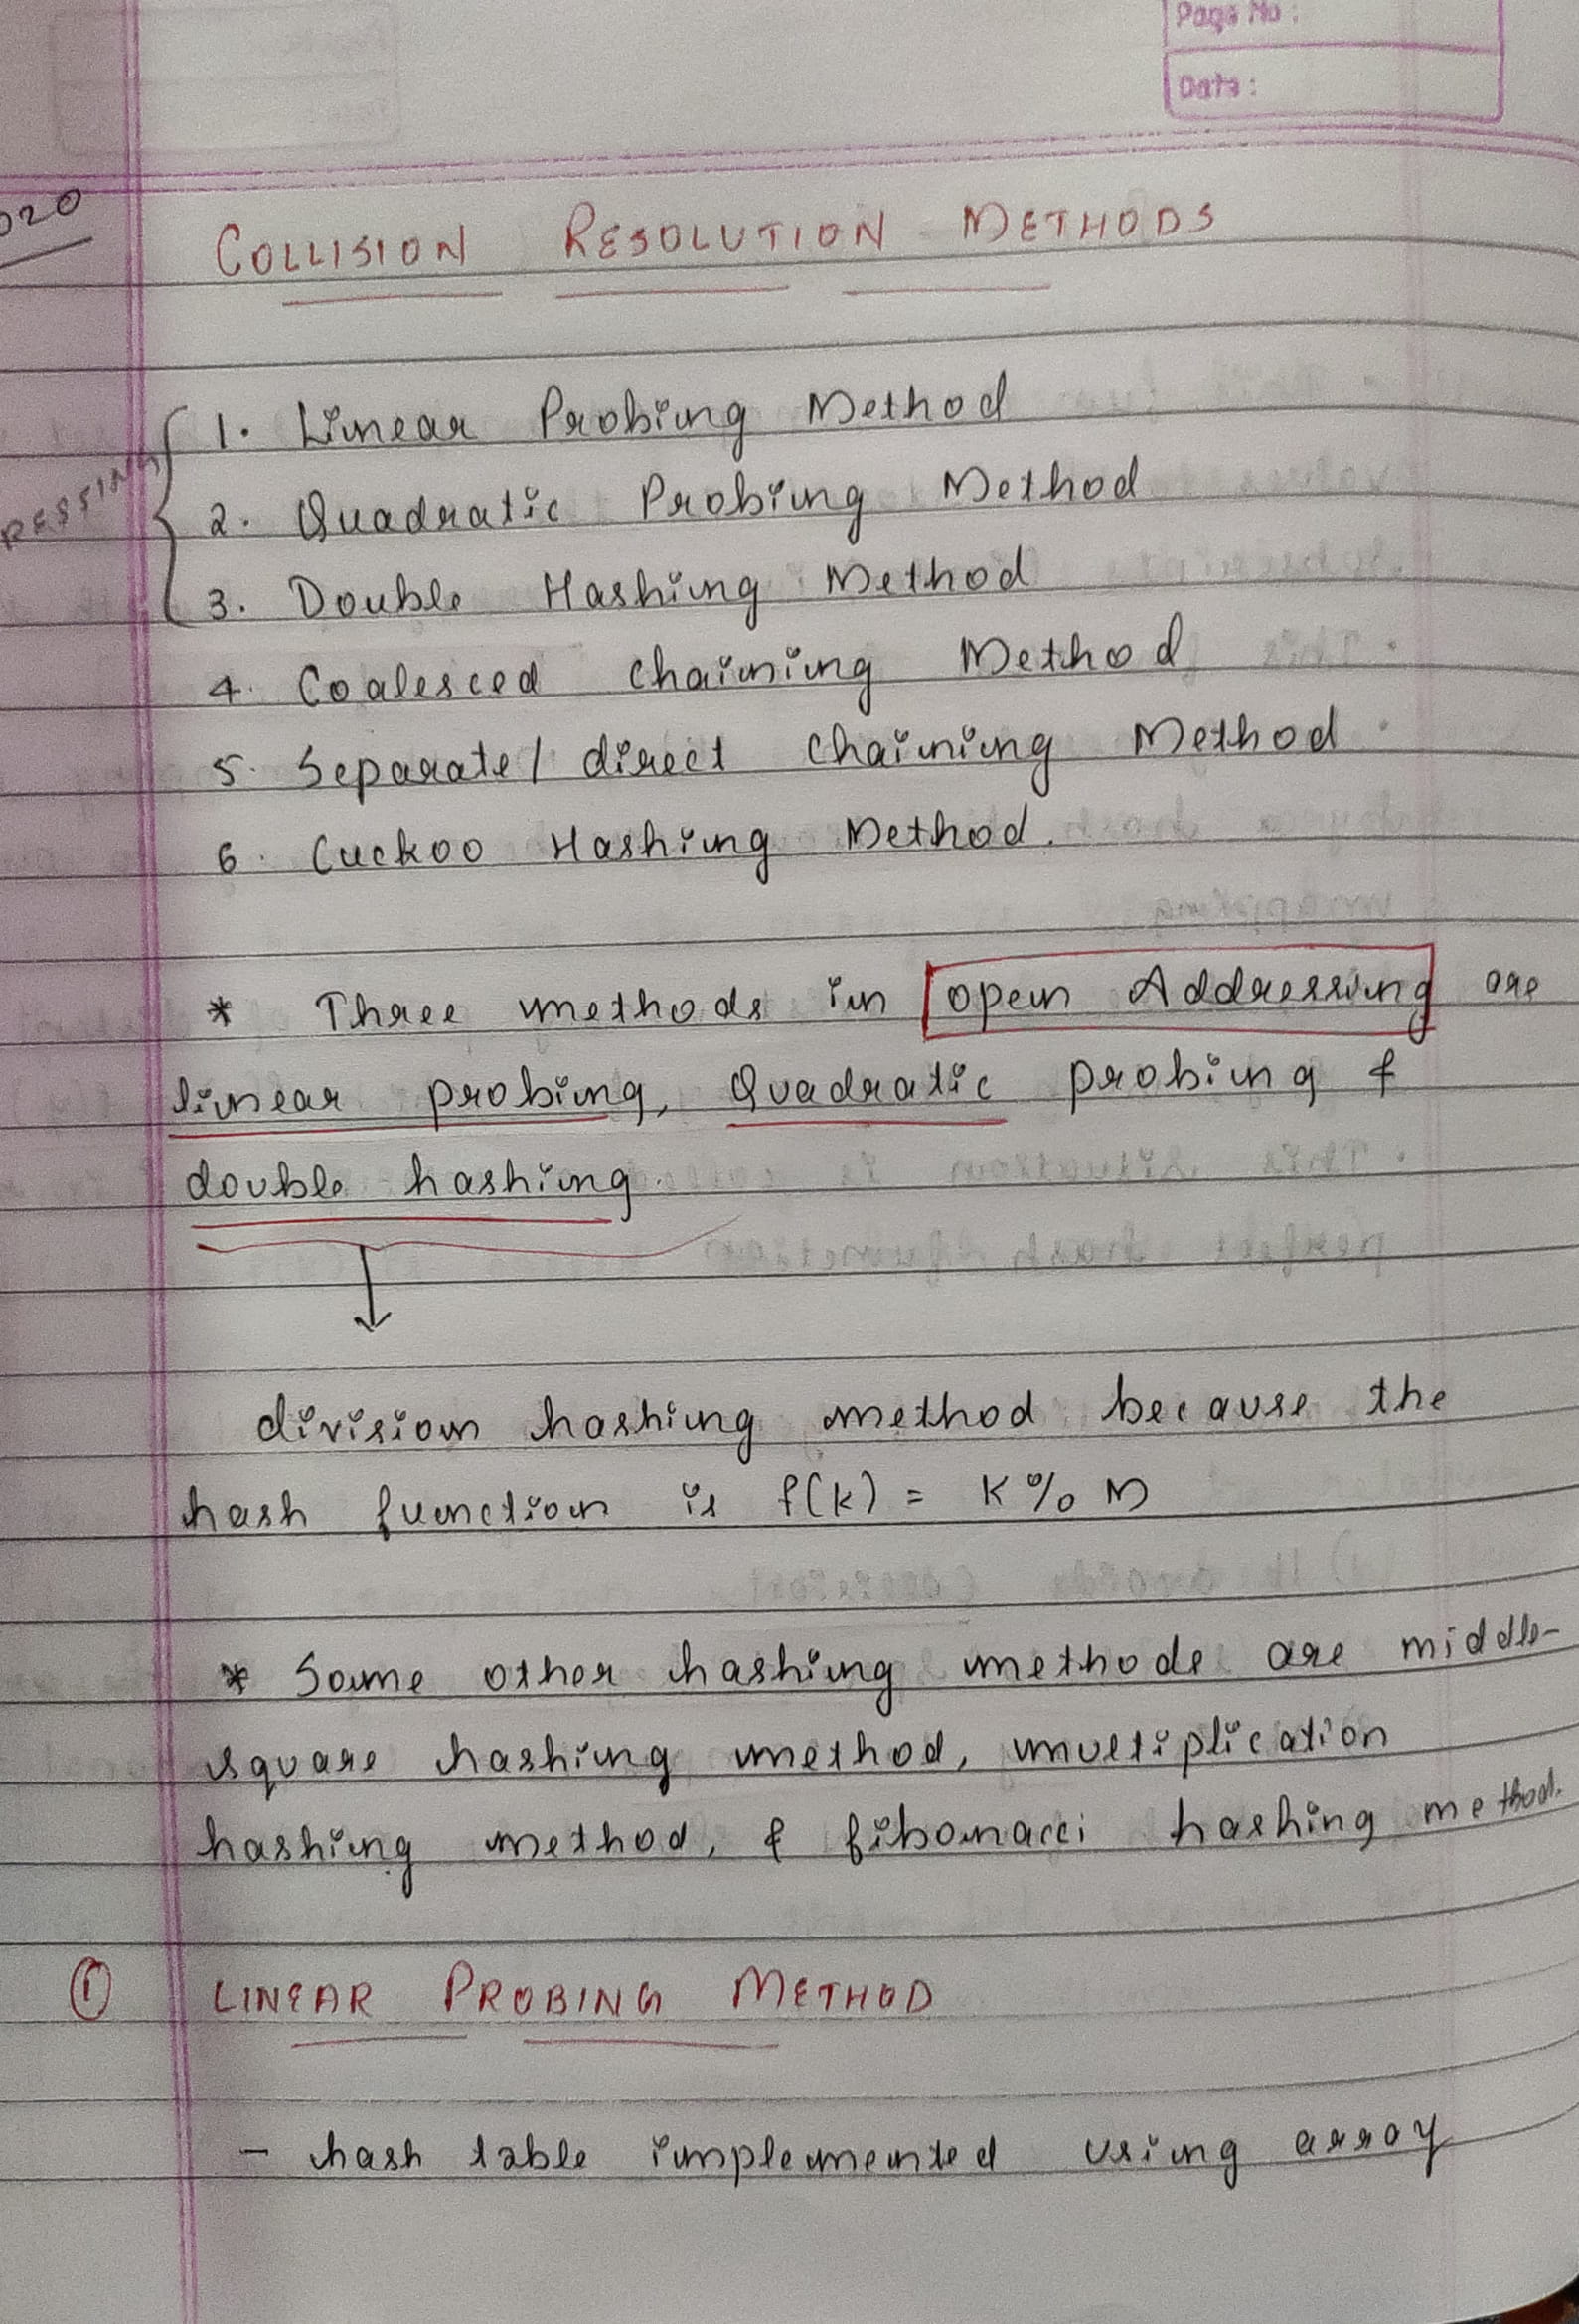 Page No :
Date :
020
COLLISION RESOLUTION METHODS
RESSING
1. Linear Probing Method
2. Quadratic Probing Method
3. Double Hashing Method
4. Coalesced Chaining Method
5. Separate/direct Chaining Method
6. Cuckoo Hashing Method.
* Three methods in open Addressing are
linear probing, Quadratic probing &
double hashing.
division hashing method because the
hash function is f(k) = K % M
* Some other hashing methods are middle-
square hashing method, multiplication
hashing method, & fibonacci hashing method.
① LINEAR PROBING METHOD
- hash table implemented using array